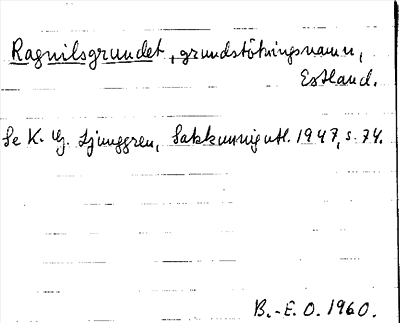 Ragnilsgrundet, grundstötningsnamn,
Estland.
Se K. G. Ljunggren, Sakkunnigutl. 1947, s. 74.
B.-E. O. 1960.